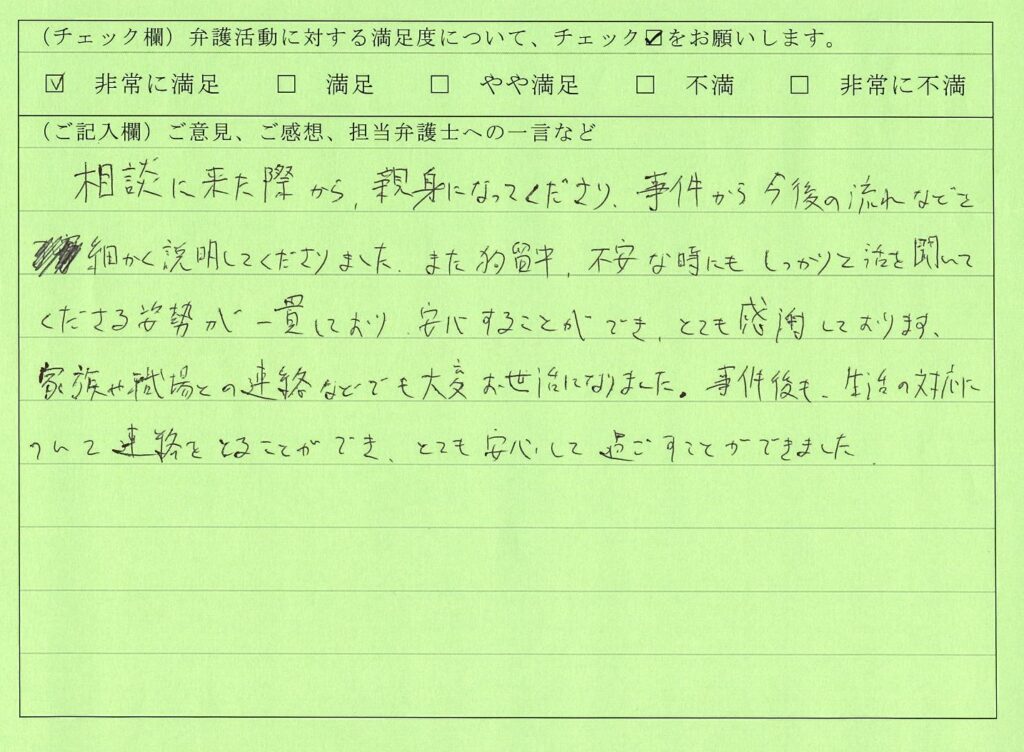 (チェック欄) 弁護活動に対する満足度について、チェック☑をお願いします。
☑ 非常に満足 □ 満足 □ やや満足 □ 不満 □ 非常に不満
(ご記入欄) ご意見、ご感想、担当弁護士への一言など
相談に来た際から、親身になってくださり、事件から今後の流れなどを
細かく説明してくださりました。また拘留中、不安な時にもしっかりと話を聞いて
くださる姿勢が一貫しており、安心することができ、とても感謝しております。
家族や職場との連絡などでも大変お世話になりました。事件後も、生活の対応に
ついて連絡をとることができ、とても安心して過ごすことができました。